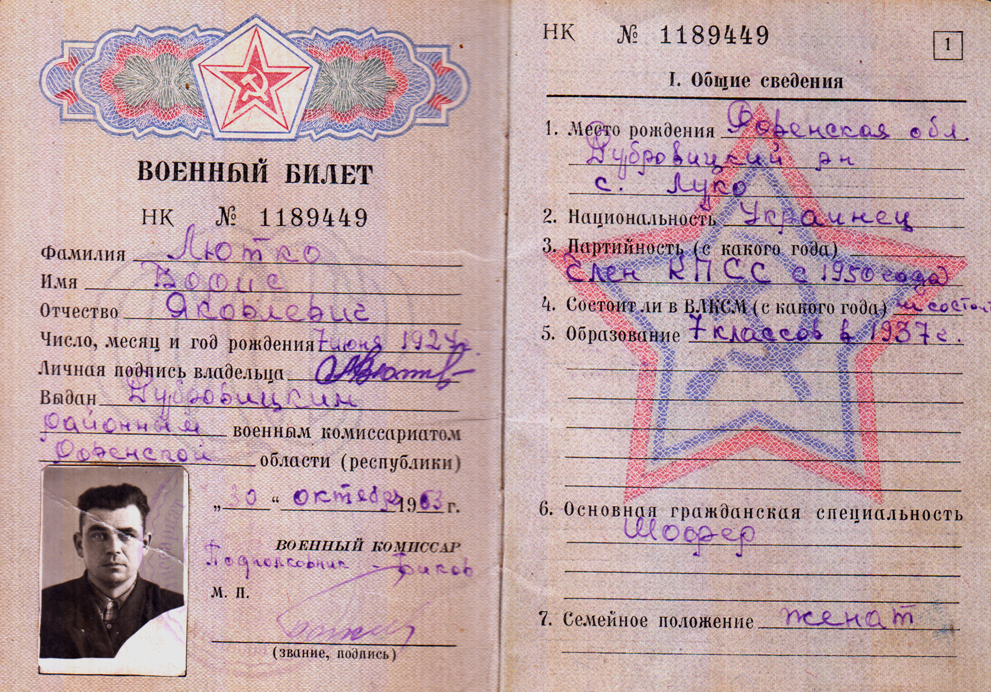 ВОЕННЫЙ БИЛЕТ
НК № 1189449
Фамилия Лютко
Имя Борис
Отчество Яковлевич
Число, месяц и год рождения 7 июня 1924г.
Личная подпись владельца
Выдан Дубровицким
районным военным комиссариатом
Ровенской области (республики)
„30 " октября 1963 г.
ВОЕННЫЙ КОМИССАР
Подполковник
М. П.
(звание, подпись)
НК № 1189449
1
I. Общие сведения
1. Место рождения Ровенская обл.
Дубровицкий рн
с. Луко
2. Национальность Украинец
3. Партийность (с какого года)
Член КПСС с 1950 года
4. Состоит ли в ВЛКСМ (с какого года) не состоит
5. Образование 7 классов в 1937 г.
6. Основная гражданская специальность
Шофер
7. Семейное положение женат